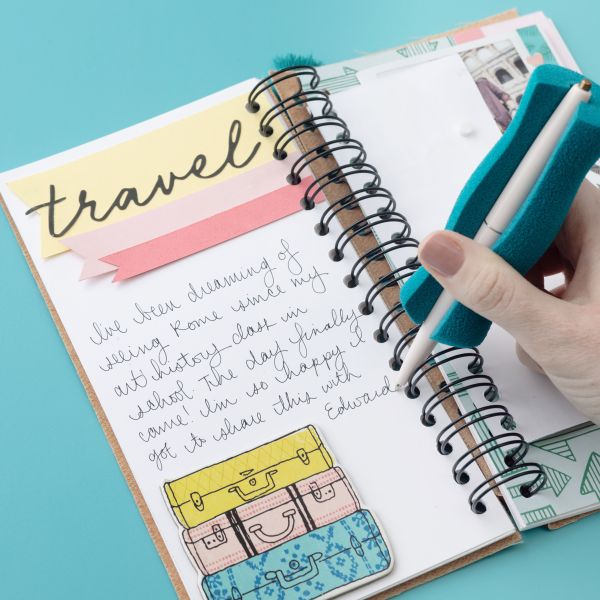 travel
I've been dreaming of
seeing Rome since my
art history class in
school. The day finally
came! I'm so happy I
got to share this with
Edward